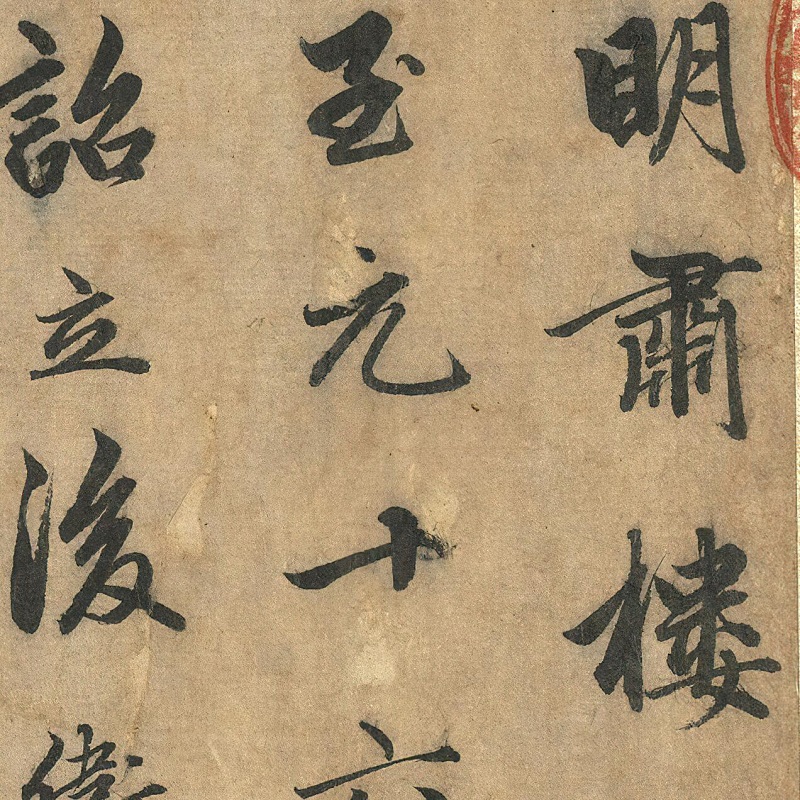 明肅樓
至元十六
詔立後衛